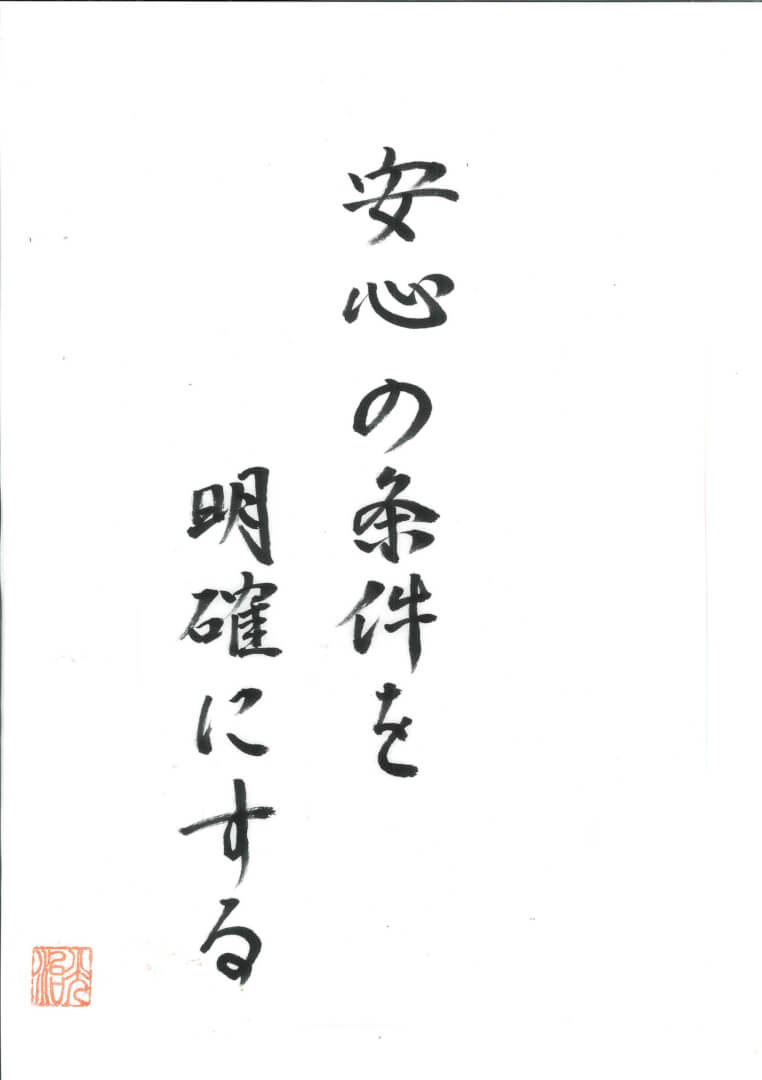 安心の条件を
明確にする